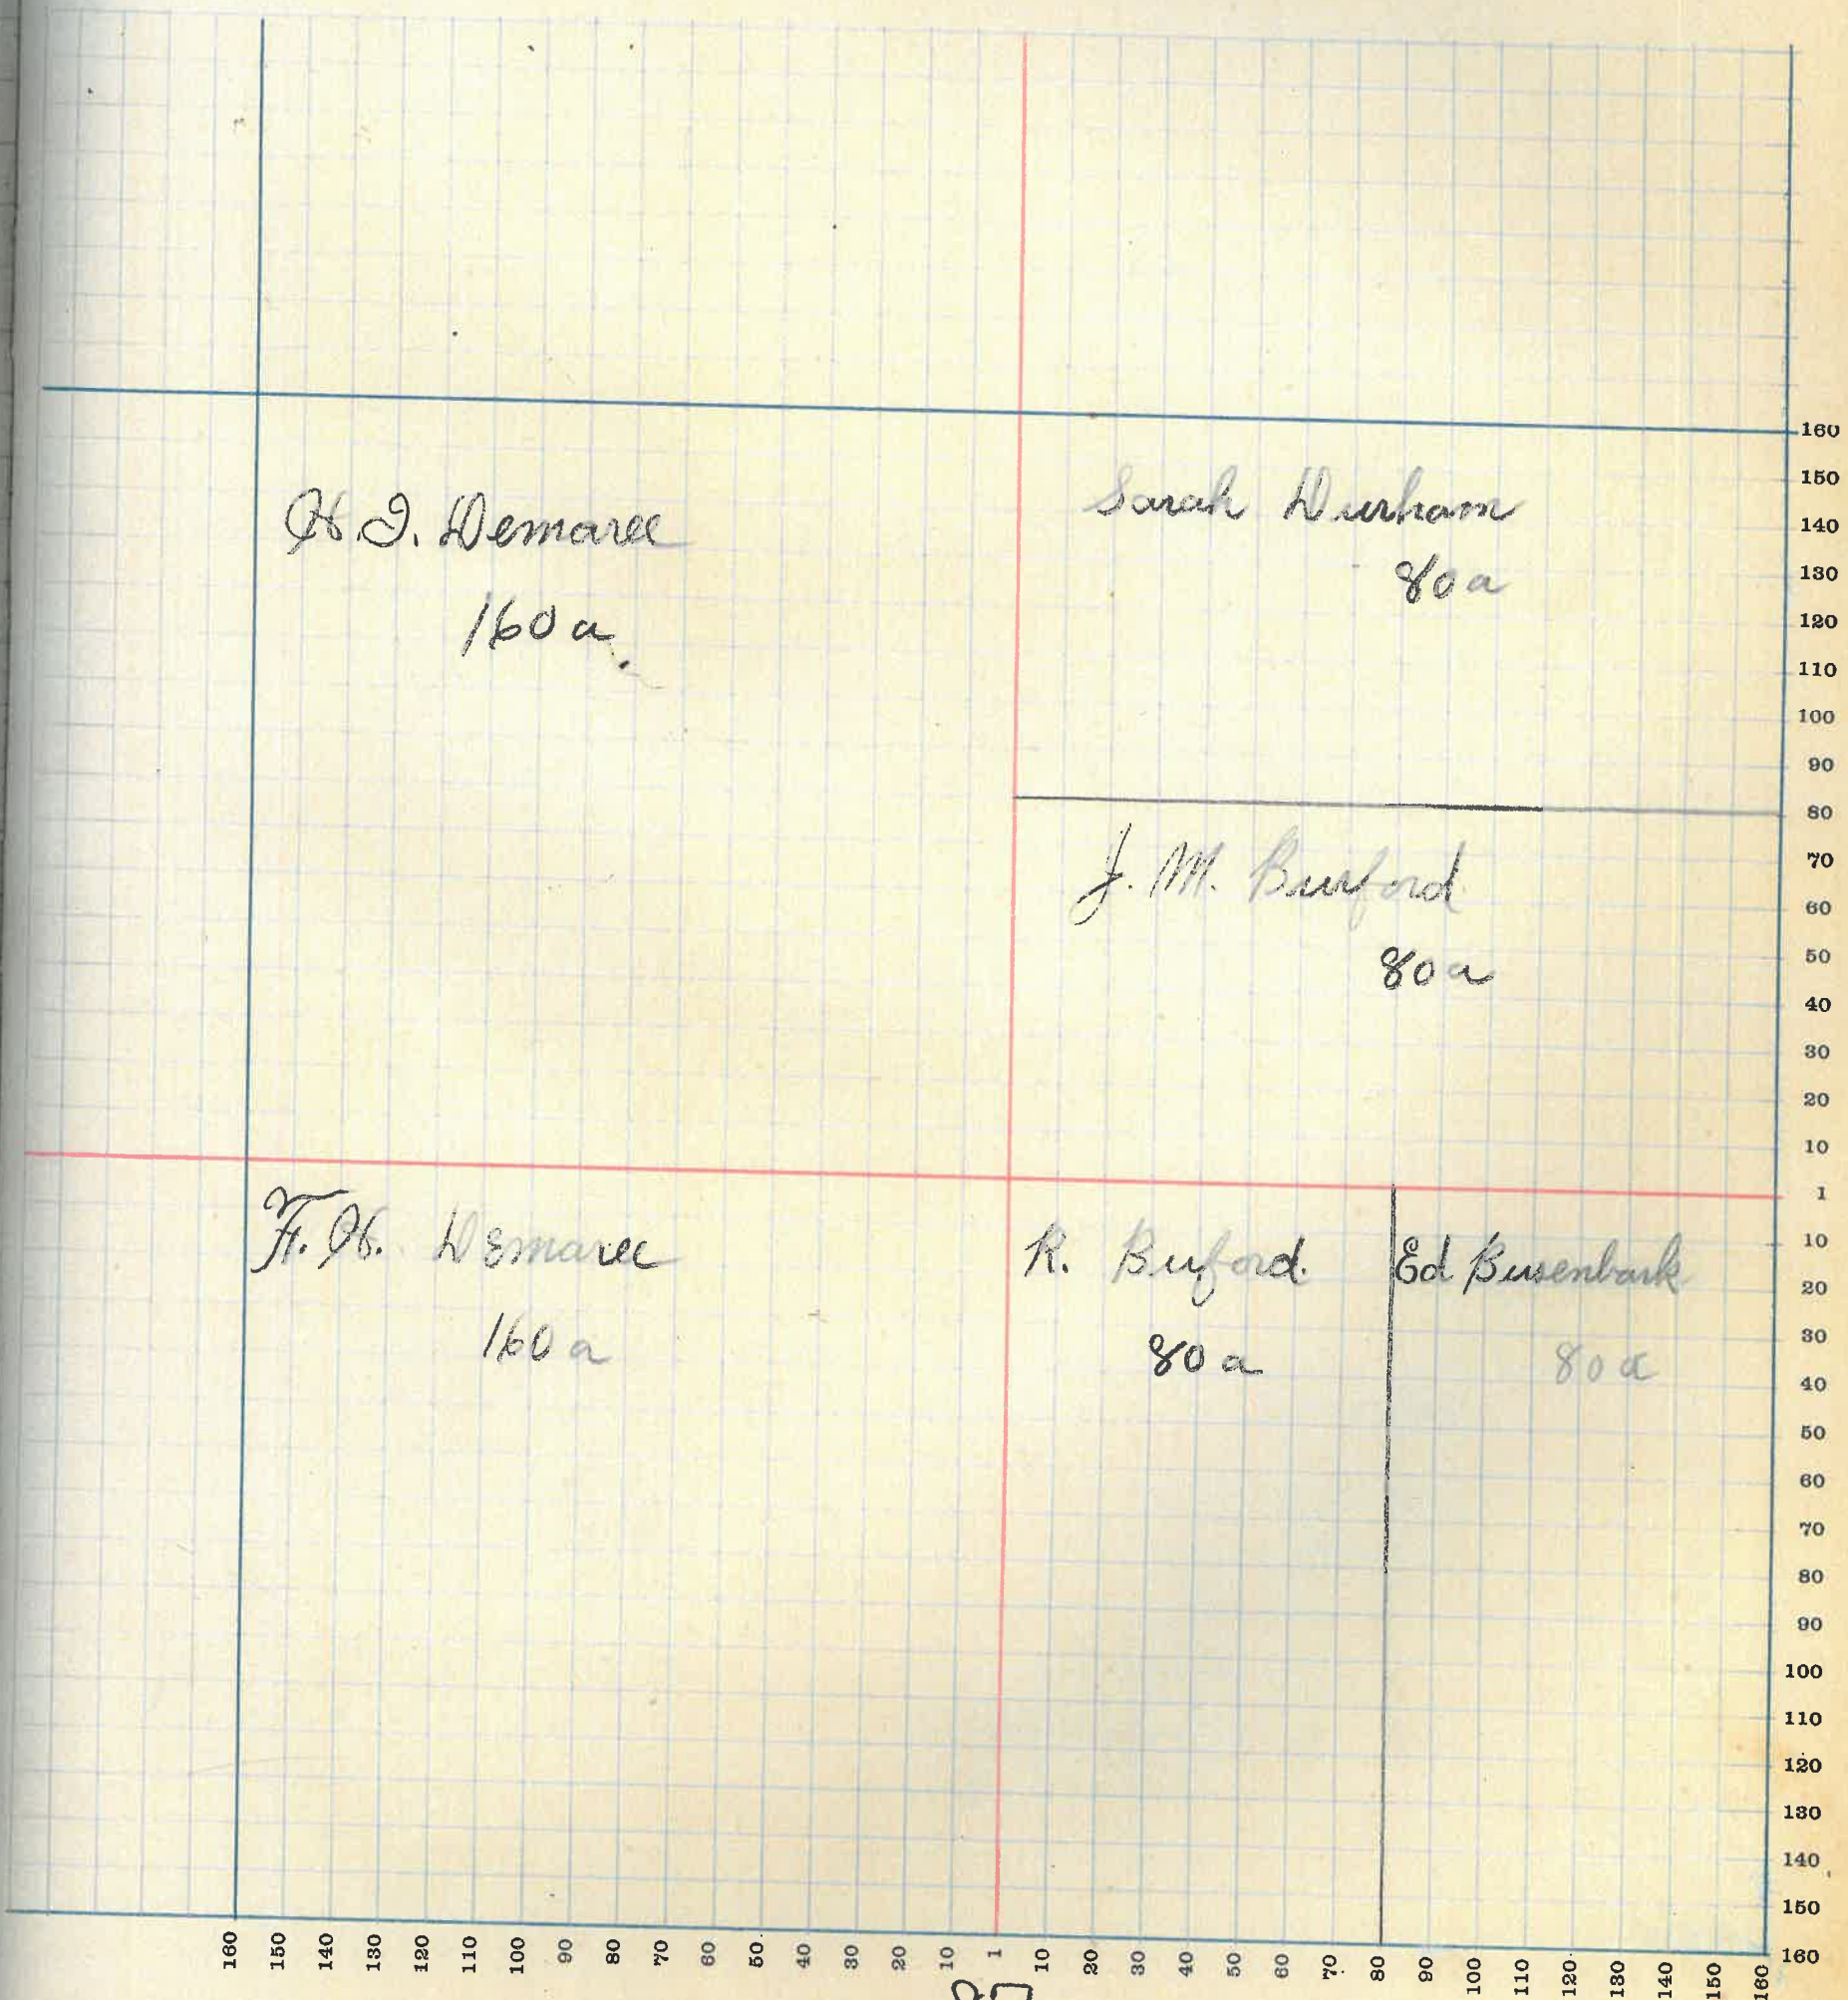 H. I. Demaree
160 a.
Sarah Durham
80 a
J. M. Burford
80 a
F. H. Demaree
160 a
R. Buford.
80 a
Ed Busenbark
80 a
160
150
140
130
120
110
100
90
80
70
60
50
40
30
20
10
1
10
20
30
40
50
60
70
80
90
100
110
120
130
140
150
160
160 150 140 130 120 110 100 90 80 70 60 50 40 30 20 10 1 10 20 30 40 50 60 70 80 90 100 110 120 130 140 150 160